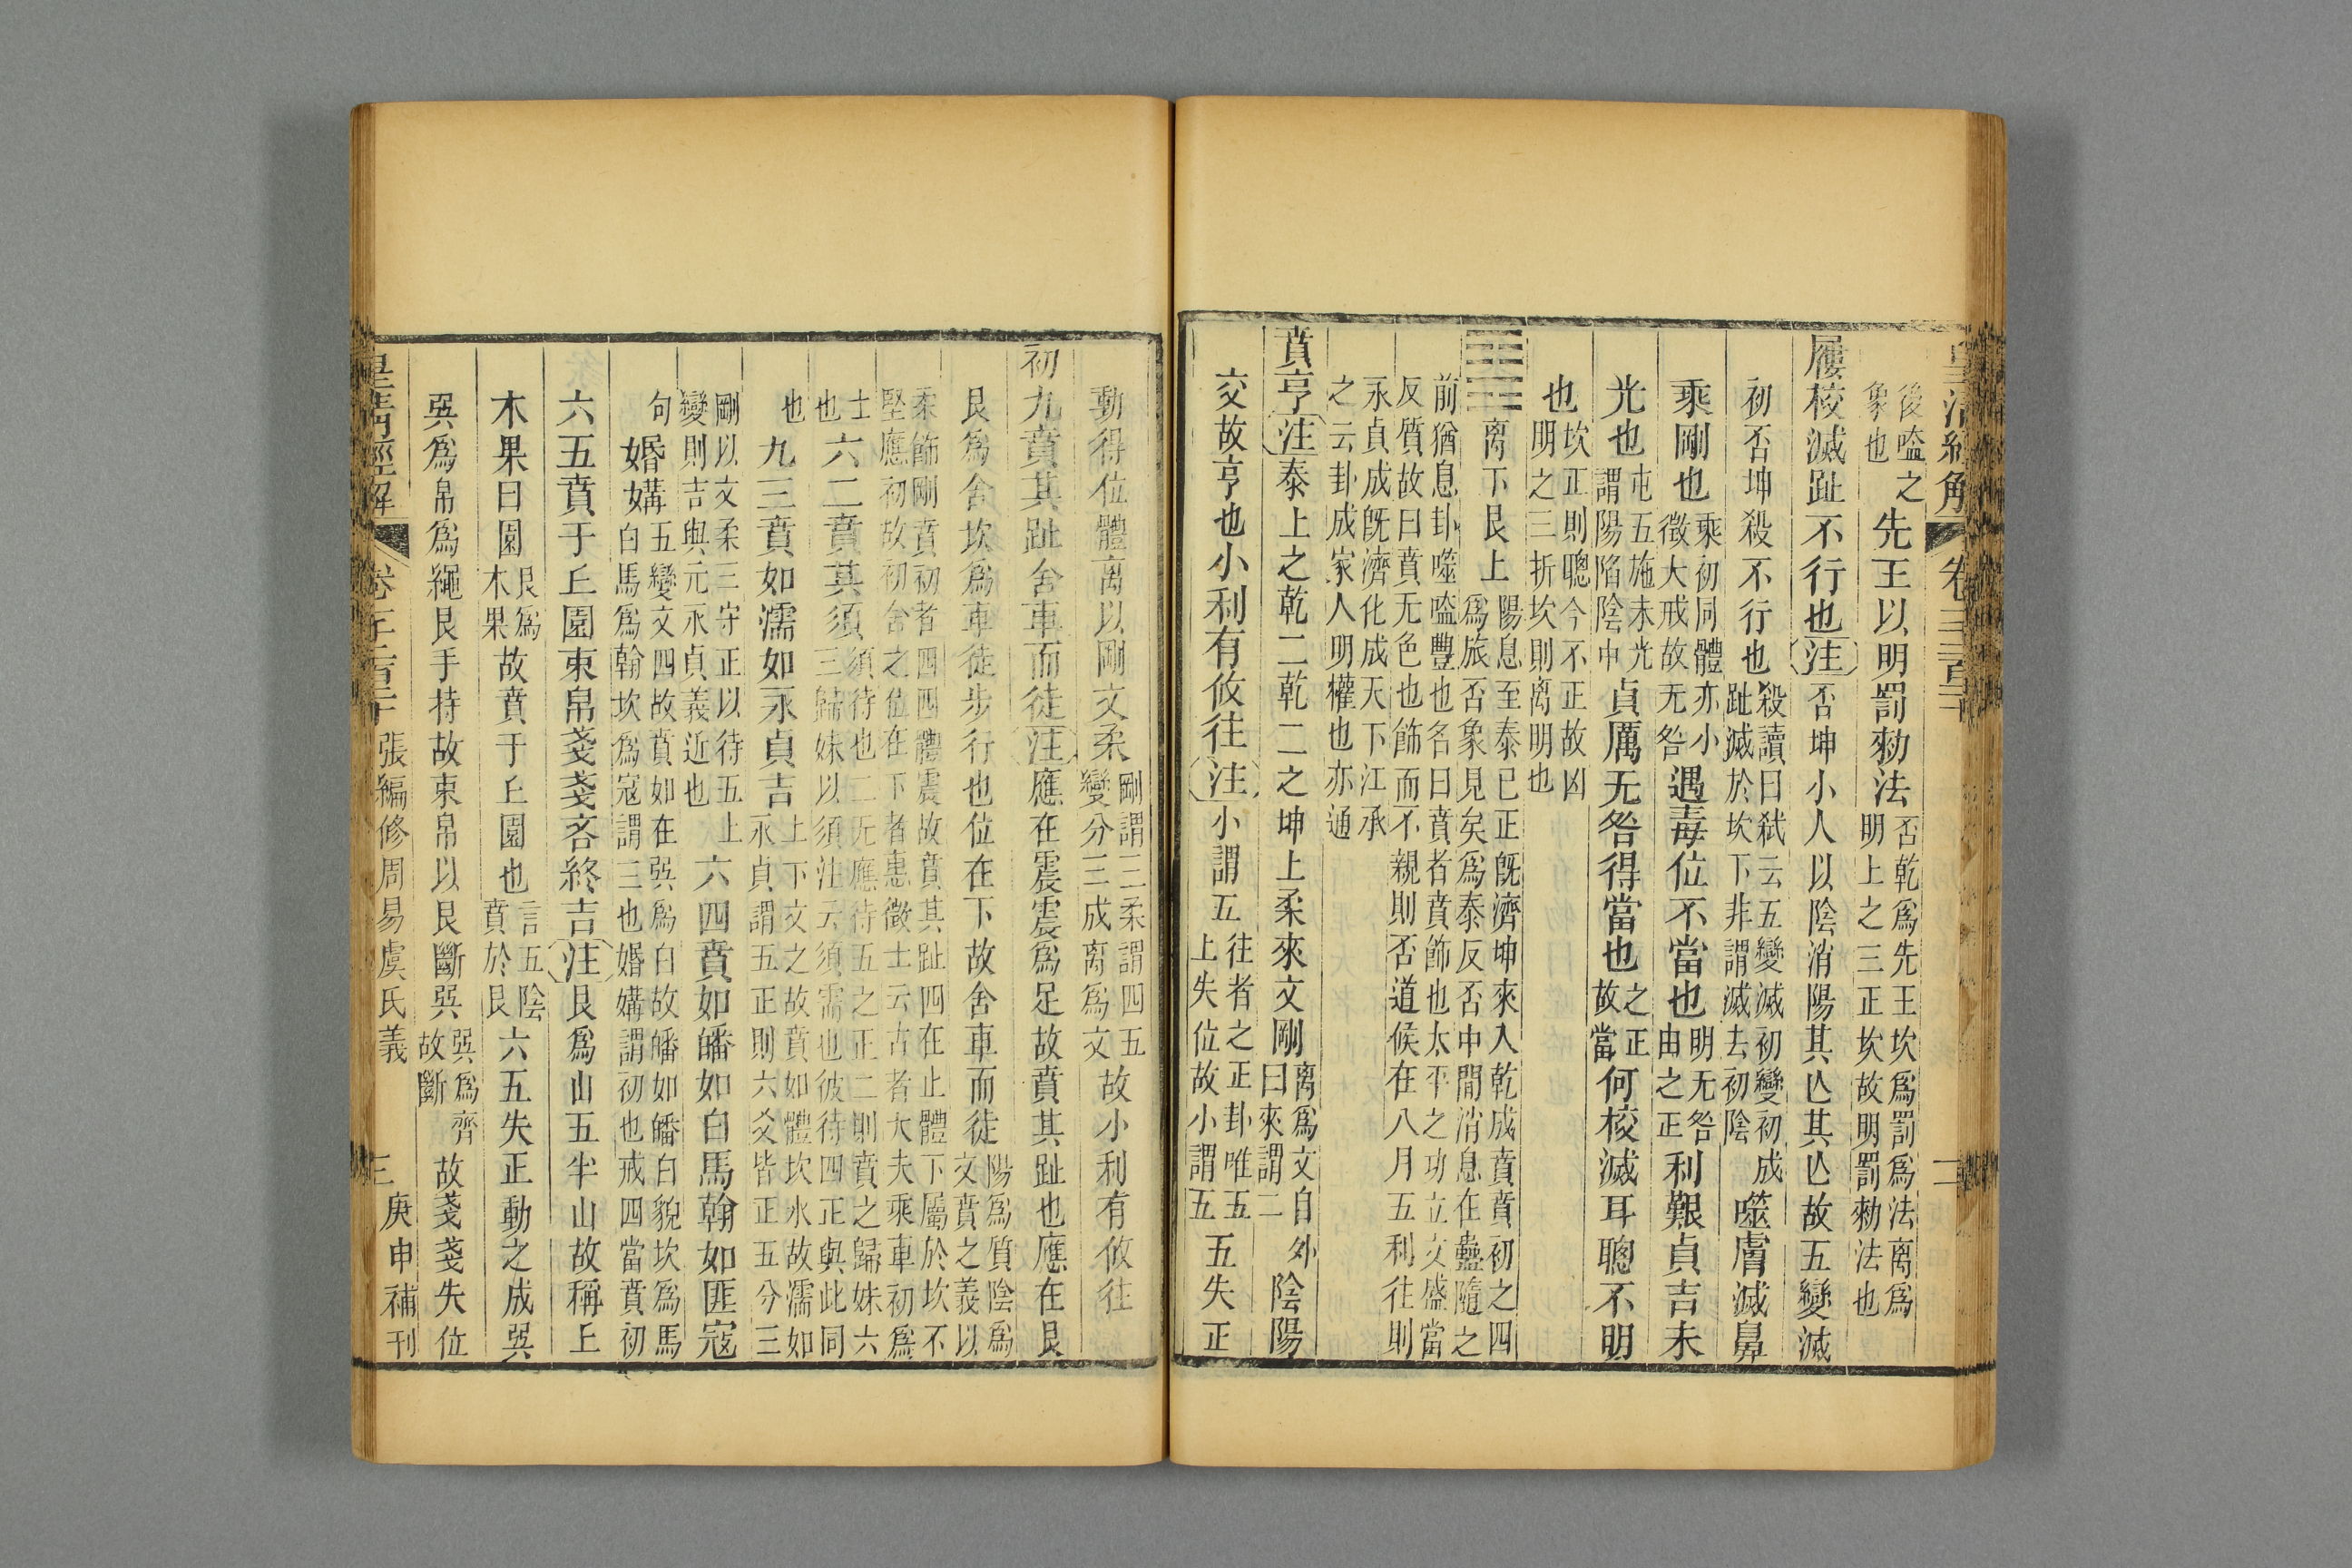 皇清經解 卷三千二百二十 二
後噬之象也先王以明罰勑法否乾爲先王坎爲罰爲法離爲明上之三正坎故明罰勑法也
屨校滅趾不行也注否坤小人以陰消陽其亾其亾故五變滅
初否坤殺不行也殺讀曰弒云五變滅初變初成趾滅於坎下非謂滅去初陰噬膚滅鼻
乘剛也乘初同體亦小徵大戒故无咎遇毒位不當也明无咎由之正利艱貞吉未
光也屯五施未光謂陽陷陰中貞厲无咎得當也之正故當何校滅耳聰不明
也坎正則聰今不正故凶明之三折坎則离明也
離下艮上陽息至泰已正旣濟坤來入乾成賁賁初之四爲旅否象見矣爲泰反否中閒消息在蠱隨之
前猶息卦噬嗑豐也名曰賁者賁飾也太平之功立文盛當反質故曰賁无色也飾而不親則否道候在八月五利往則
永貞成旣濟化成天下江承之云卦成家人明權也亦通
賁亨注泰上之乾二乾二之坤上柔來文剛離爲文自外曰來謂二陰陽
交故亨也小利有攸往注小謂五往者之正卦唯五上失位故小謂五五失正
動得位體离以剛文柔剛謂三柔謂四五變分三成离爲文故小利有攸往
初九賁其趾舍車而徒注應在震震爲足故賁其趾也應在艮
艮爲舍坎爲車徒步行也位在下故舍車而徒陽爲質陰爲文賁之義以
柔飾剛賁初者四四體震故賁其趾四在止體下屬於坎不堅應初故初舍之位在下者惠徵士云古者大夫乘車初爲
士也六二賁其須須待也二无應待五之正二則賁之歸妹六三歸妹以須注云須需也彼待四正與此同
也九三賁如濡如永貞吉上下文之故賁如體坎水故濡如永貞謂五正則六爻皆正五分三
剛以文柔三守正以待五上變則吉與元永貞義近也六四賁如皤如白馬翰如匪寇
句婚媾五變文四故賁如在巽爲白故皤如皤白貌坎爲馬白馬爲翰坎爲寇謂三也婚媾謂初也戒四當賁初
六五賁于丘園束帛戔戔吝終吉注艮爲山五半山故稱丘
木果曰園艮爲木果故賁于丘園也言五陰賁於艮六五失正動之成巽
巽爲帛爲繩艮手持故束帛以艮斷巽巽爲齊故斷故戔戔失位
皇清經解 卷三千二百二十 張編修周易虞氏義 三 庚申補刊